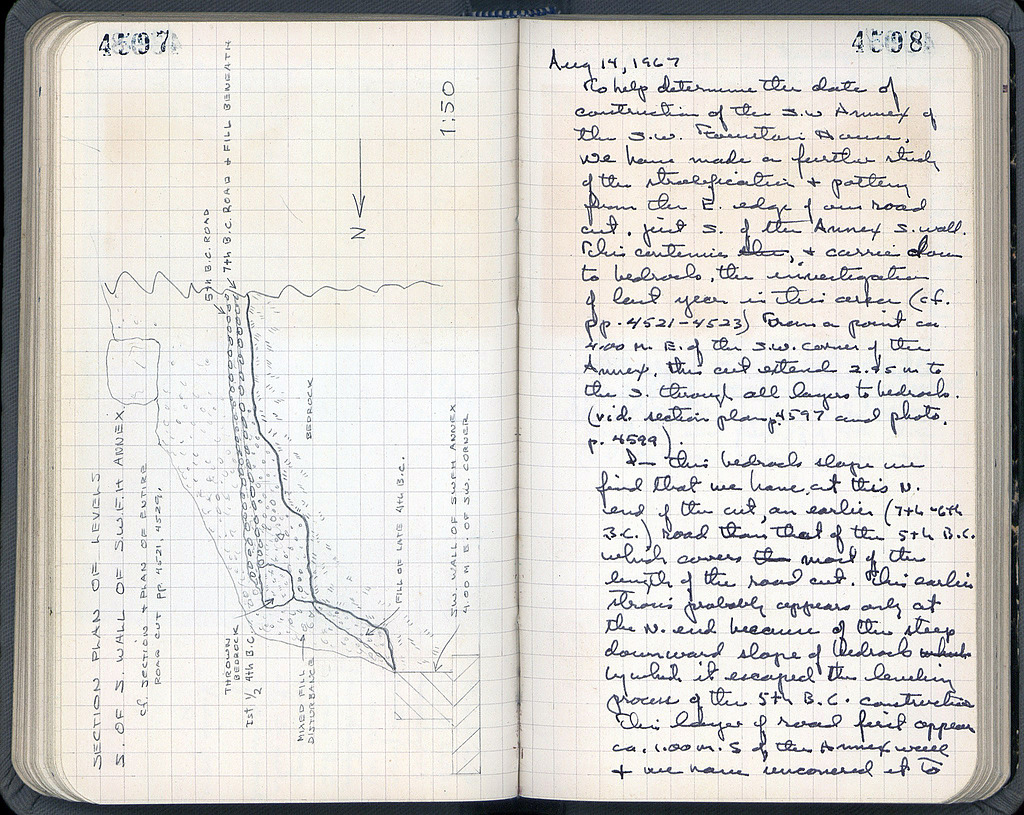 4597
SECTION PLAN OF LEVELS
S. OF S. WALL OF S.W.F.H ANNEX
cf. SECTION + PLAN OF ENTIRE
ROAD CUT PP. 4521, 4529.
5th B.C. ROAD
7th B.C. ROAD + FILL BENEATH
THROWN
BEDROCK
1st 1/2 4th B.C.
MIXED FILL
DISTURBANCE
BEDROCK
FILL OF LATE 4th B.C.
S.W. WALL OF SWFH ANNEX
4.00 M E. OF SW. CORNER
N
1:50
4598
Aug 14, 1967
To help determine the date of
construction of the S.W Annex of
the S.W. Fountain House,
we have made a further study
of the stratification + pottery
from the E. edge of our road
cut, just S. of the Annex S. wall.
This continues , + carries down
to bedrock, the investigation
of last year in this area (cf.
pp. 4521-4523) From a point ca
4.00 m E. of the S.W. corner of the
Annex, this cut extends 2.75 m to
the S. through all layers to bedrock.
(vid. section plan p. 4597 and photo.
p. 4599).
In this bedrock slope we
find that we have, at this N.
end of the cut, an earlier (7th-6th
B.C.) road than that of the 5th B.C.
which covers most of the
length of the road cut. This earlier
strosis probably appears only at
the N. end because of the steep
downward slope of bedrock
by which it escaped the leveling
process of the 5th B.C. construction
This layer of road first appears
ca. 1.00 m. S of the Annex wall
+ we have uncovered it to